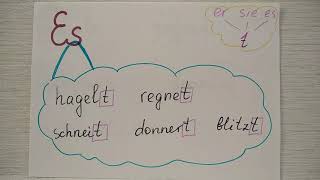 er sie es
t
Es
hagelt regnet
schneit donnert blitzt